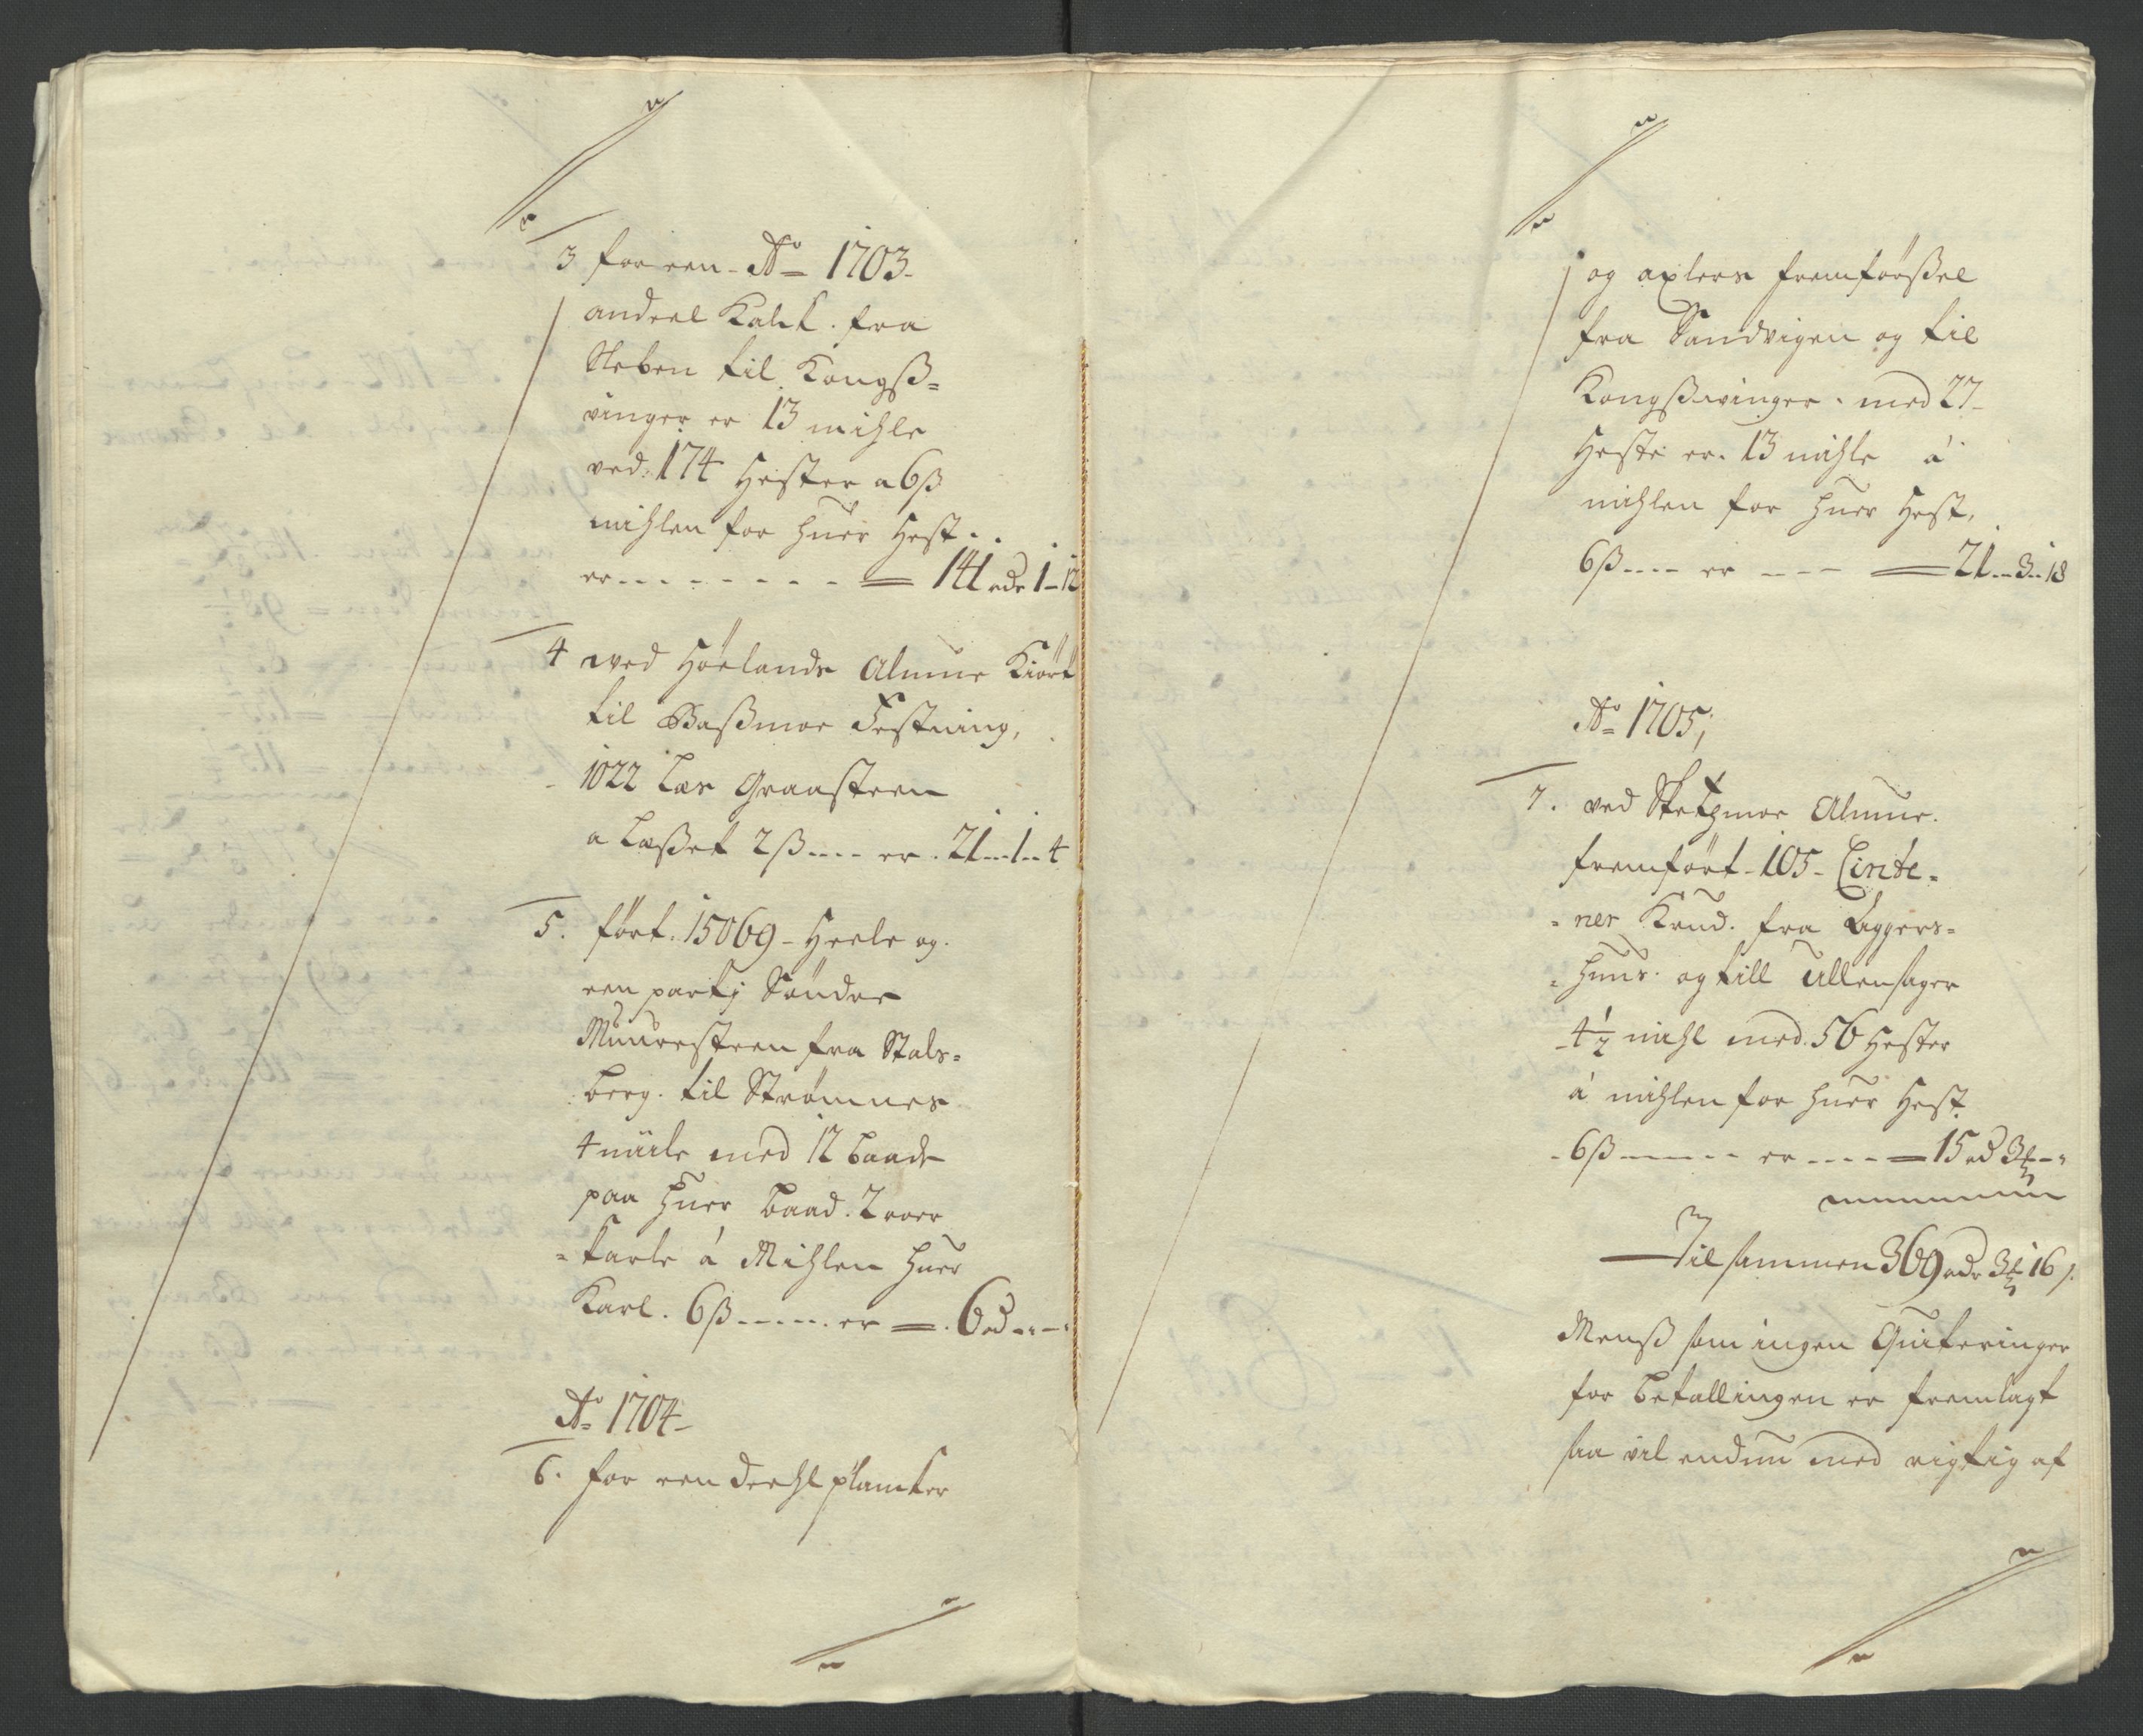 3 for een - Ao 1703 -
andeel Kalck. fra
Neben til Kongsß=
vinger er 13 mihle
ved. 174 Hester a 6ß
mihlen for huer Hest..
er - - - - - - - = 141 rdr 1 - 12
4 med Høelands Almue Kiørt
til Baßmoe Festning,
1022 Læs Graasteen
a Læßet 2ß ---- er. 21 -- 1 -- 4
5. ført. 15069 - Heele og.
een partj Sønder
Muursteen fra Stals=
berg. til Strømnes
4 miile med 12 baade
paa huer baad. 2 roer
= karle á Mihlen huer
Karl. 6ß ----- er =. 6 rd -- --
Ao 1704 -
6. for een deehl plancker
og axlers fremførßel
fra Sandvigen og til
Kongßwinger. med 27 -
Heste er. 13 mihle á
mihlen for huer Hest,
6ß ---- er --- = 21 -- 3 -- 18
Ao 1705;
7. ved Skedzmoe Almue.
fremført - 105 - Cinte=
= ner Krud. fra Aggers=
= huus. og till Ullensager
4 1/2 mihl med. 56 Hester
á mihlen for huer Hest
6ß ------ er ---- = 15 rd 3 --
Tilsammen 369 rdr 3 16 ß.
Menß som ingen Quiteringer
for betallingen er fremlagt
saa vil endnu med rigtig af